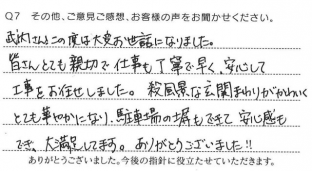 Q7 その他、ご意見ご感想、お客様の声をお聞かせください。
武内さんこの度は大変お世話になりました。
皆さんとても親切で仕事も丁寧で早く、安心して
工事をお任せしました。殺風景な玄関まわりがかわいく
とても華やかになり、駐車場の塀もできて安心感も
でき、大満足してます。ありがとうございました!!
ありがとうございました。今後の指針に役立たせていただきます。